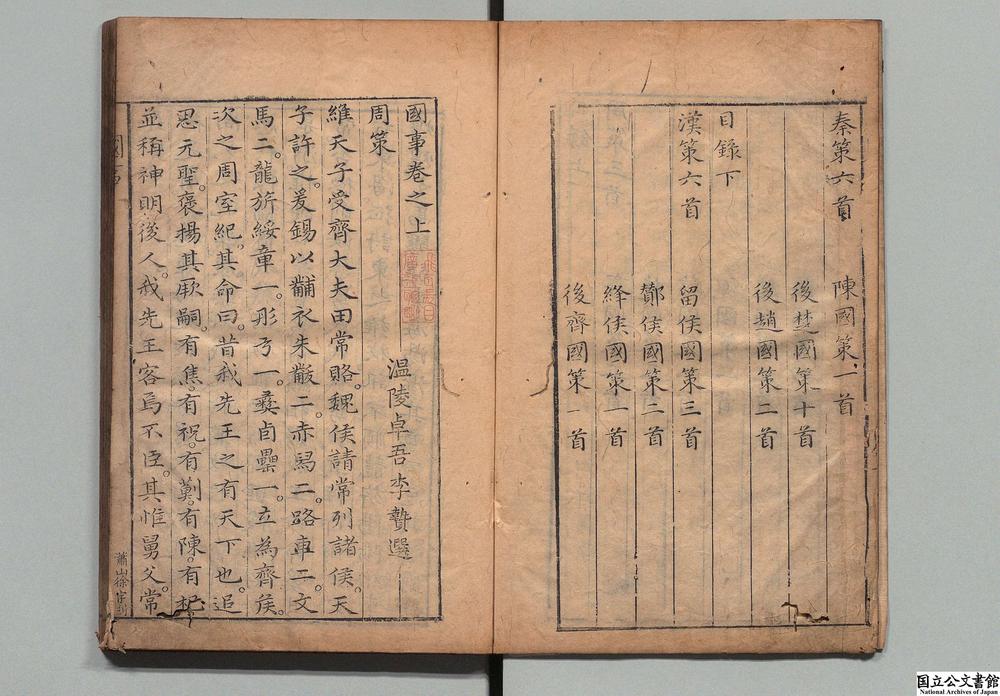 秦策六首 陳國策一首
後楚國策十首
後趙國策二首
目錄下
漢策六首 留侯國策三首
酇侯國策二首
絳侯國策一首
後齊國策一首
國事卷之上
周策 溫陵卓吾李贄選
維天子受齊大夫田常賂魏侯請常列諸侯天
子許之爰錫以黼衣朱黻二赤舄二路車二文
馬二龍旂綏章一彤弓一彝卣罍一立為齊侯
次之周室紀其命曰昔我先王之有天下也追
思元聖褒揚其厥嗣有焦有祝有薊有陳有杞
並稱神明後人我先王客焉不臣其惟舅父常
國立公文書館
National Archives of Japan